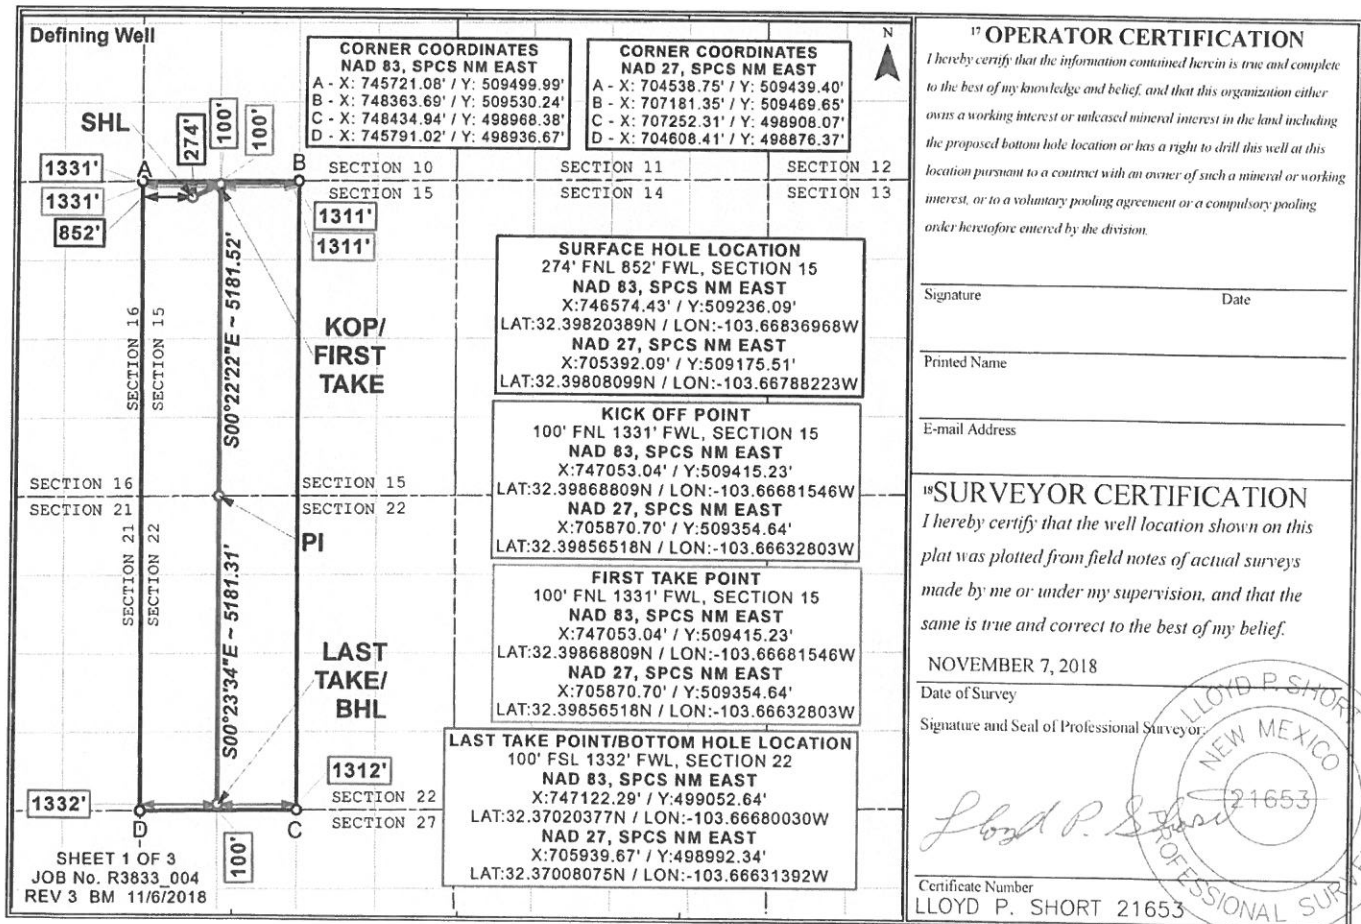 Defining Well
CORNER COORDINATES
NAD 83, SPCS NM EAST
A - X: 745721.08' / Y: 509499.99'
B - X: 748363.69' / Y: 509530.24'
C - X: 748434.94' / Y: 498968.38'
D - X: 745791.02' / Y: 498936.67'
CORNER COORDINATES
NAD 27, SPCS NM EAST
A - X: 704538.75' / Y: 509439.40'
B - X: 707181.35' / Y: 509469.65'
C - X: 707252.31' / Y: 498908.07'
D - X: 704608.41' / Y: 498876.37'
N
SHL
274'
100'
100'
1331'
A
B
SECTION 10
SECTION 11
SECTION 12
1331'
SECTION 15
SECTION 14
SECTION 13
852'
1311'
1311'
S00°22'22"E ~ 5181.52'
SECTION 16
SECTION 15
KOP/
FIRST
TAKE
SURFACE HOLE LOCATION
274' FNL 852' FWL, SECTION 15
NAD 83, SPCS NM EAST
X:746574.43' / Y:509236.09'
LAT:32.39820389N / LON:-103.66836968W
NAD 27, SPCS NM EAST
X:705392.09' / Y:509175.51'
LAT:32.39808099N / LON:-103.66788223W
KICK OFF POINT
100' FNL 1331' FWL, SECTION 15
NAD 83, SPCS NM EAST
X:747053.04' / Y:509415.23'
LAT:32.39868809N / LON:-103.66681546W
NAD 27, SPCS NM EAST
X:705870.70' / Y:509354.64'
LAT:32.39856518N / LON:-103.66632803W
SECTION 16
SECTION 15
SECTION 21
SECTION 22
PI
SECTION 21
SECTION 22
S00°23'34"E ~ 5181.31'
FIRST TAKE POINT
100' FNL 1331' FWL, SECTION 15
NAD 83, SPCS NM EAST
X:747053.04' / Y:509415.23'
LAT:32.39868809N / LON:-103.66681546W
NAD 27, SPCS NM EAST
X:705870.70' / Y:509354.64'
LAT:32.39856518N / LON:-103.66632803W
LAST
TAKE/
BHL
LAST TAKE POINT/BOTTOM HOLE LOCATION
100' FSL 1332' FWL, SECTION 22
NAD 83, SPCS NM EAST
X:747122.29' / Y:499052.64'
LAT:32.37020377N / LON:-103.66680030W
NAD 27, SPCS NM EAST
X:705939.67' / Y:498992.34'
LAT:32.37008075N / LON:-103.66631392W
1312'
1332'
SECTION 22
SECTION 27
D
C
100'
SHEET 1 OF 3
JOB No. R3833_004
REV 3 BM 11/6/2018
17 OPERATOR CERTIFICATION
I hereby certify that the information contained herein is true and complete
to the best of my knowledge and belief, and that this organization either
owns a working interest or unleased mineral interest in the land including
the proposed bottom hole location or has a right to drill this well at this
location pursuant to a contract with an owner of such a mineral or working
interest, or to a voluntary pooling agreement or a compulsory pooling
order heretofore entered by the division.
Signature Date
Printed Name
E-mail Address
18 SURVEYOR CERTIFICATION
I hereby certify that the well location shown on this
plat was plotted from field notes of actual surveys
made by me or under my supervision, and that the
same is true and correct to the best of my belief.
NOVEMBER 7, 2018
Date of Survey
Signature and Seal of Professional Surveyor:
LLOYD P. SHORT
NEW MEXICO
21653
PROFESSIONAL SURV
Lloyd P. Short
Certificate Number
LLOYD P. SHORT 21653